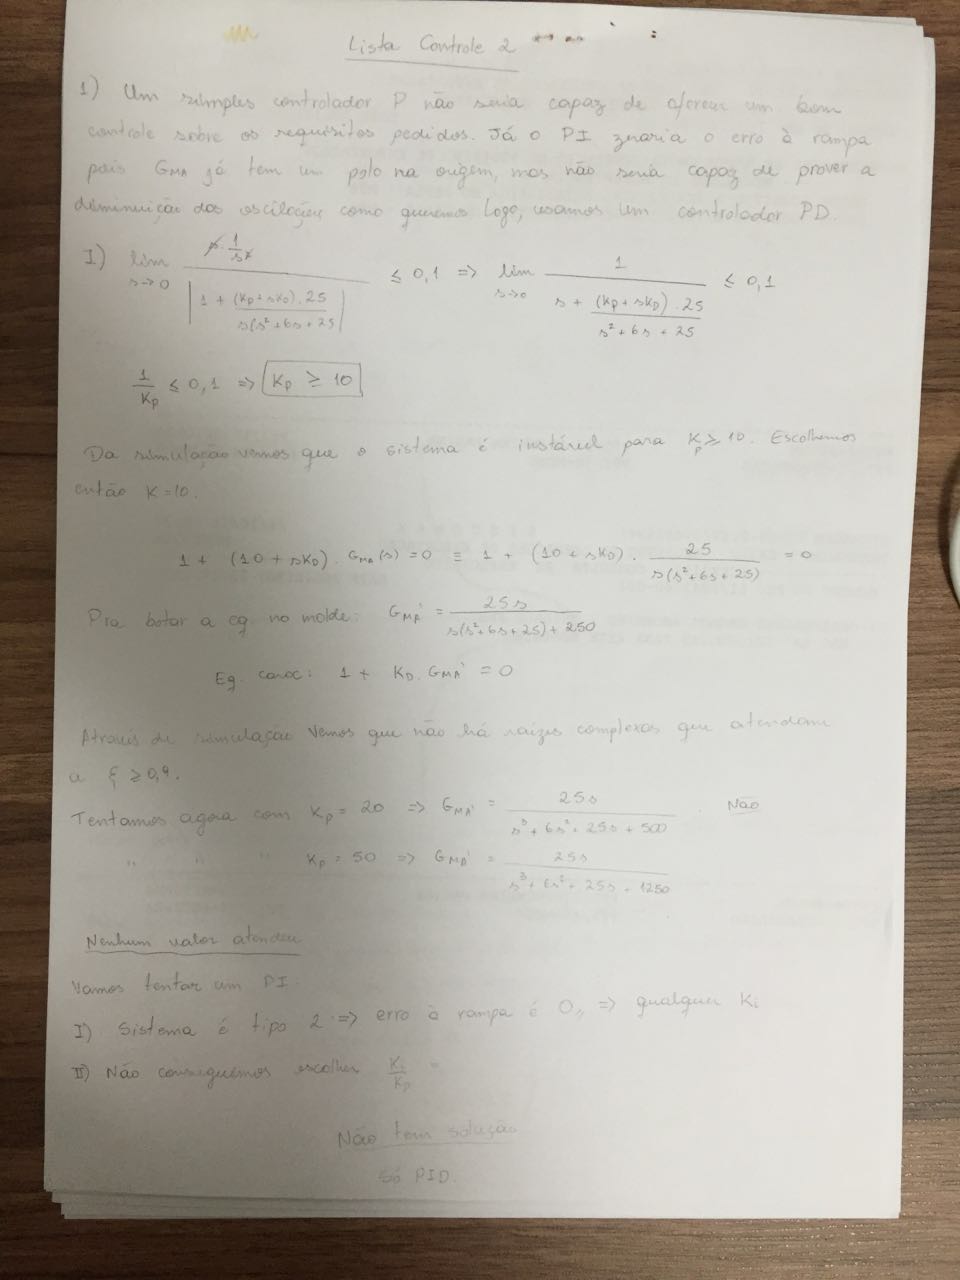 Lista Controle 2
1) Um simples controlador P não seria capaz de oferecer um bom
controle sobre os requisitos pedidos. Já o PI zeraria o erro à rampa
pois GMA já tem um polo na origem, mas não seria capaz de prover a
diminuição das oscilações como queremos. Logo, usamos um controlador PD.
I) lim s→0 s · 1/s² / |1 + (Kp + sKD) . 25 / s(s² + 6s + 25)| ≤ 0,1 => lim s→0 1 / (s + (Kp + sKD) . 25 / (s² + 6s + 25)) ≤ 0,1
1/Kp ≤ 0,1 => Kp ≥ 10
Da simulação vemos que o sistema é instável para Kp ≥ 10. Escolhemos
então K = 10.
1 + (10 + sKD) . GMA(s) = 0 ≡ 1 + (10 + sKD) . 25 / s(s² + 6s + 25) = 0
Pra botar a eq. no molde: GMA' = 25s / s(s² + 6s + 25) + 250
Eq. carac: 1 + KD. GMA' = 0
Através de simulação vemos que não há raízes complexas que atendam
a ξ ≥ 0,9.
Tentamos agora com Kp = 20 => GMA' = 25s / s³ + 6s² + 25s + 500 Não
" " " Kp = 50 => GMA' = 25s / s³ + 6s² + 25s + 1250
Nenhum valor atendeu
Vamos tentar um PI
I) Sistema é tipo 2 => erro à rampa é 0,, => qualquer Ki
II) Não conseguimos escolher Ki/Kp =
Não tem solução
Só PID.